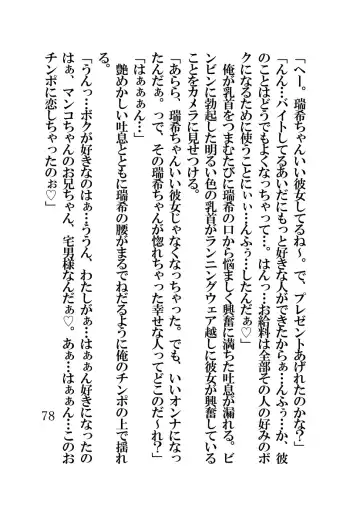 「へー。瑞希ちゃんいい彼女してるね～。で、プレゼントあげれたのかな?」
「んん…バイトしてるあいだにもっと好きな人ができたからぁ…んふぅ…か、彼
のことはどうでもよくなっちゃって…。はんっ…お給料は全部その人の好みのボ
クになるために使うことにぃぃ…んふぅ…したんだぁ♡」
俺が乳首をつまむたびに瑞希の口から悩ましく興奮に満ちた吐息が漏れる。ビ
ンビンに勃起した明るい色の乳首がランニングウェア越しに彼女が興奮している
ことをカメラに見せつける。
「あらら、瑞希ちゃんいい彼女じゃなくなっちゃった。でも、いいオンナになっ
たんだぁ。って、その瑞希ちゃんが惚れちゃった幸せな人ってどこのだ～れ?」
「はぁぁぁん…」
艶めかしい吐息とともに瑞希の腰がまるでねだるように俺のチンポの上で揺れ
る。
「うんっ…ボクが好きなのはぁ…ううん、わたしがぁ…はぁぁん好きになったの
はぁ、マンコちゃんのお兄ちゃん、宅男様なんだぁ♡。あぁ…はぁぁん…このお
チンポに恋しちゃったのぉ♡」
78